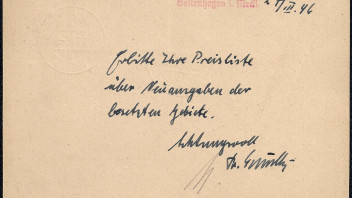 Boltenhagen i. Meckl.
/III. 46
Erbitte Ihre Preisliste
über Neuausgaben der
besetzten Gebiete.
Achtungsvoll
Dr.